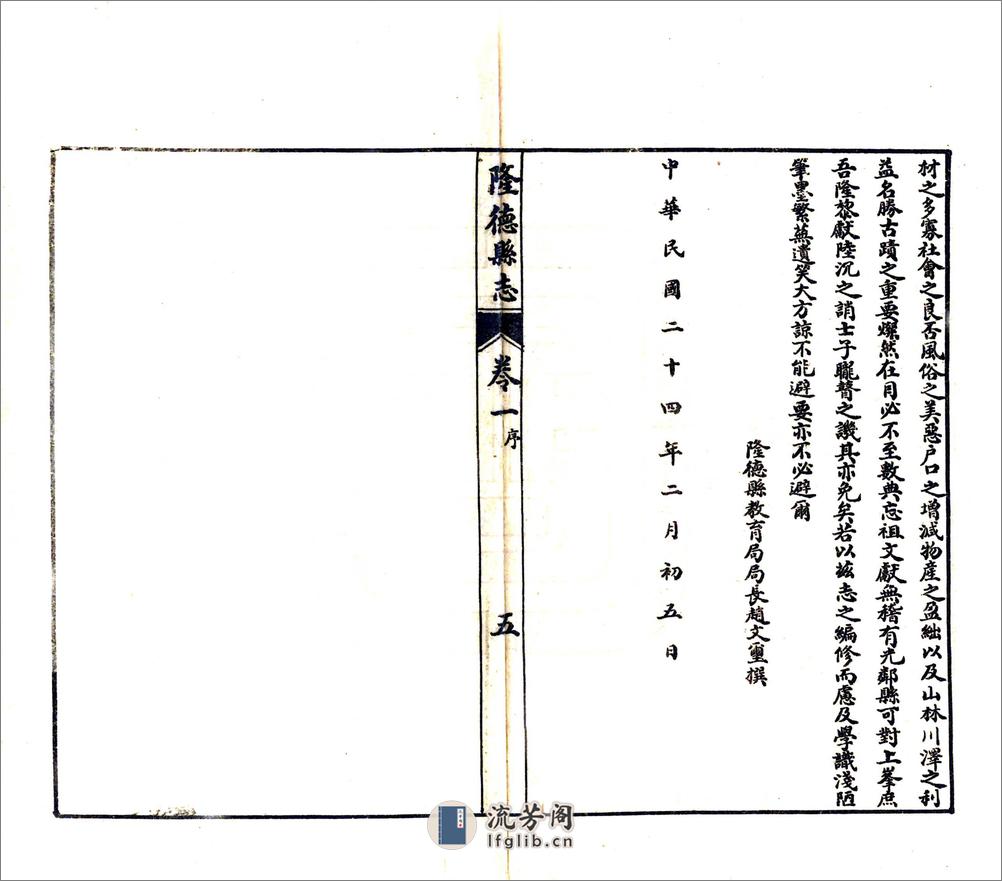 材之多寡社會之良否風俗之美惡户口之增減物產之盈絀以及山林川澤之利
益名勝古蹟之重要燦然在目必不至數典忘祖文獻無稽有光鄰縣可對上峯庶
吾隆黎獻陸沉之誚士子矓瞽之譏其亦免矣若以玆志之編修而慮及學識淺陋
筆墨繁蕪遺笑大方諒不能避要亦不必避爾
隆德縣教育局局長趙文璽撰
中華民國二十四年二月初五日
隆德縣志
卷一
序
五
流芳阁
lfglib.cn